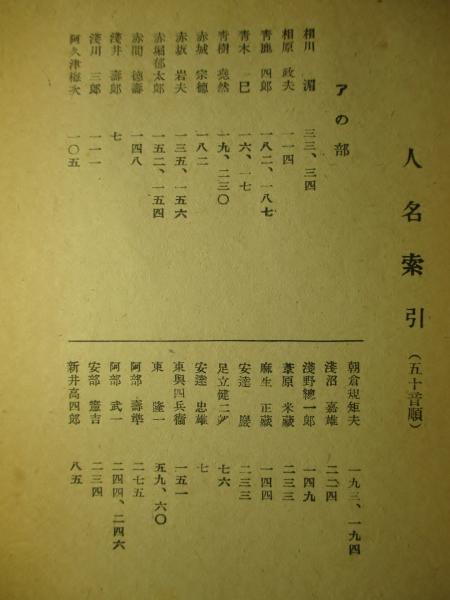 人名索引（五十音順）
アの部
相川　湄　三三、三四
相原　政夫　一一四
青鹿　四郎　一八二、一八七
青木　一巳　一六、一七
青樹　堯然　一九、二三〇
赤城　宗徳　一八二
赤坂　岩夫　一三五、一五六
赤堀郁太郎　一五二、一五四
赤間　徳壽　一四八
淺井　壽郎　七
淺川　三郎　一一一
阿久津極次　一〇五
朝倉規矩夫　一九三、一九四
淺沼　嘉雄　二二四
淺野總一郎　一四九
葦原　米藏　二三三
麻生　正藏　一四四
安達　巖　二三三
足立健二郎　七六
安達　忠雄　七
東與四兵衞　一五一
東　隆一　五九、六〇
阿部　壽準　二七五
阿部　武一　二四四、二四六
安部　憲吉　二三四
新井高四郎　八五